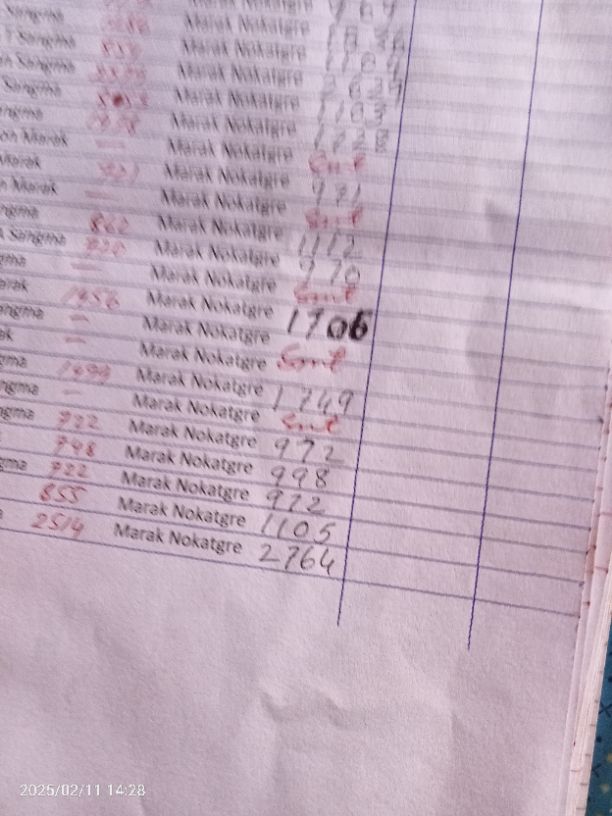 Sangma Marak Nokatgre
T Sangma Marak Nokatgre
an Sangma Marak Nokatgre
Sangma Marak Nokatgre
angma Marak Nokatgre 1103
on Marak — Marak Nokatgre 1728
Marak Marak Nokatgre Smt
n Marak — Marak Nokatgre 971
ngma 862 Marak Nokatgre Smt
k Sangma 720 Marak Nokatgre 1112
gma — Marak Nokatgre 970
arak 1456 Marak Nokatgre Smt
angma — Marak Nokatgre 1706
ak — Marak Nokatgre Smt
gma 1499 Marak Nokatgre 1749
ngma — Marak Nokatgre Smt
ngma 722 Marak Nokatgre 972
748 Marak Nokatgre 998
gma 722 Marak Nokatgre 972
855 Marak Nokatgre 1105
a 2514 Marak Nokatgre 2764
2025/02/11 14:28